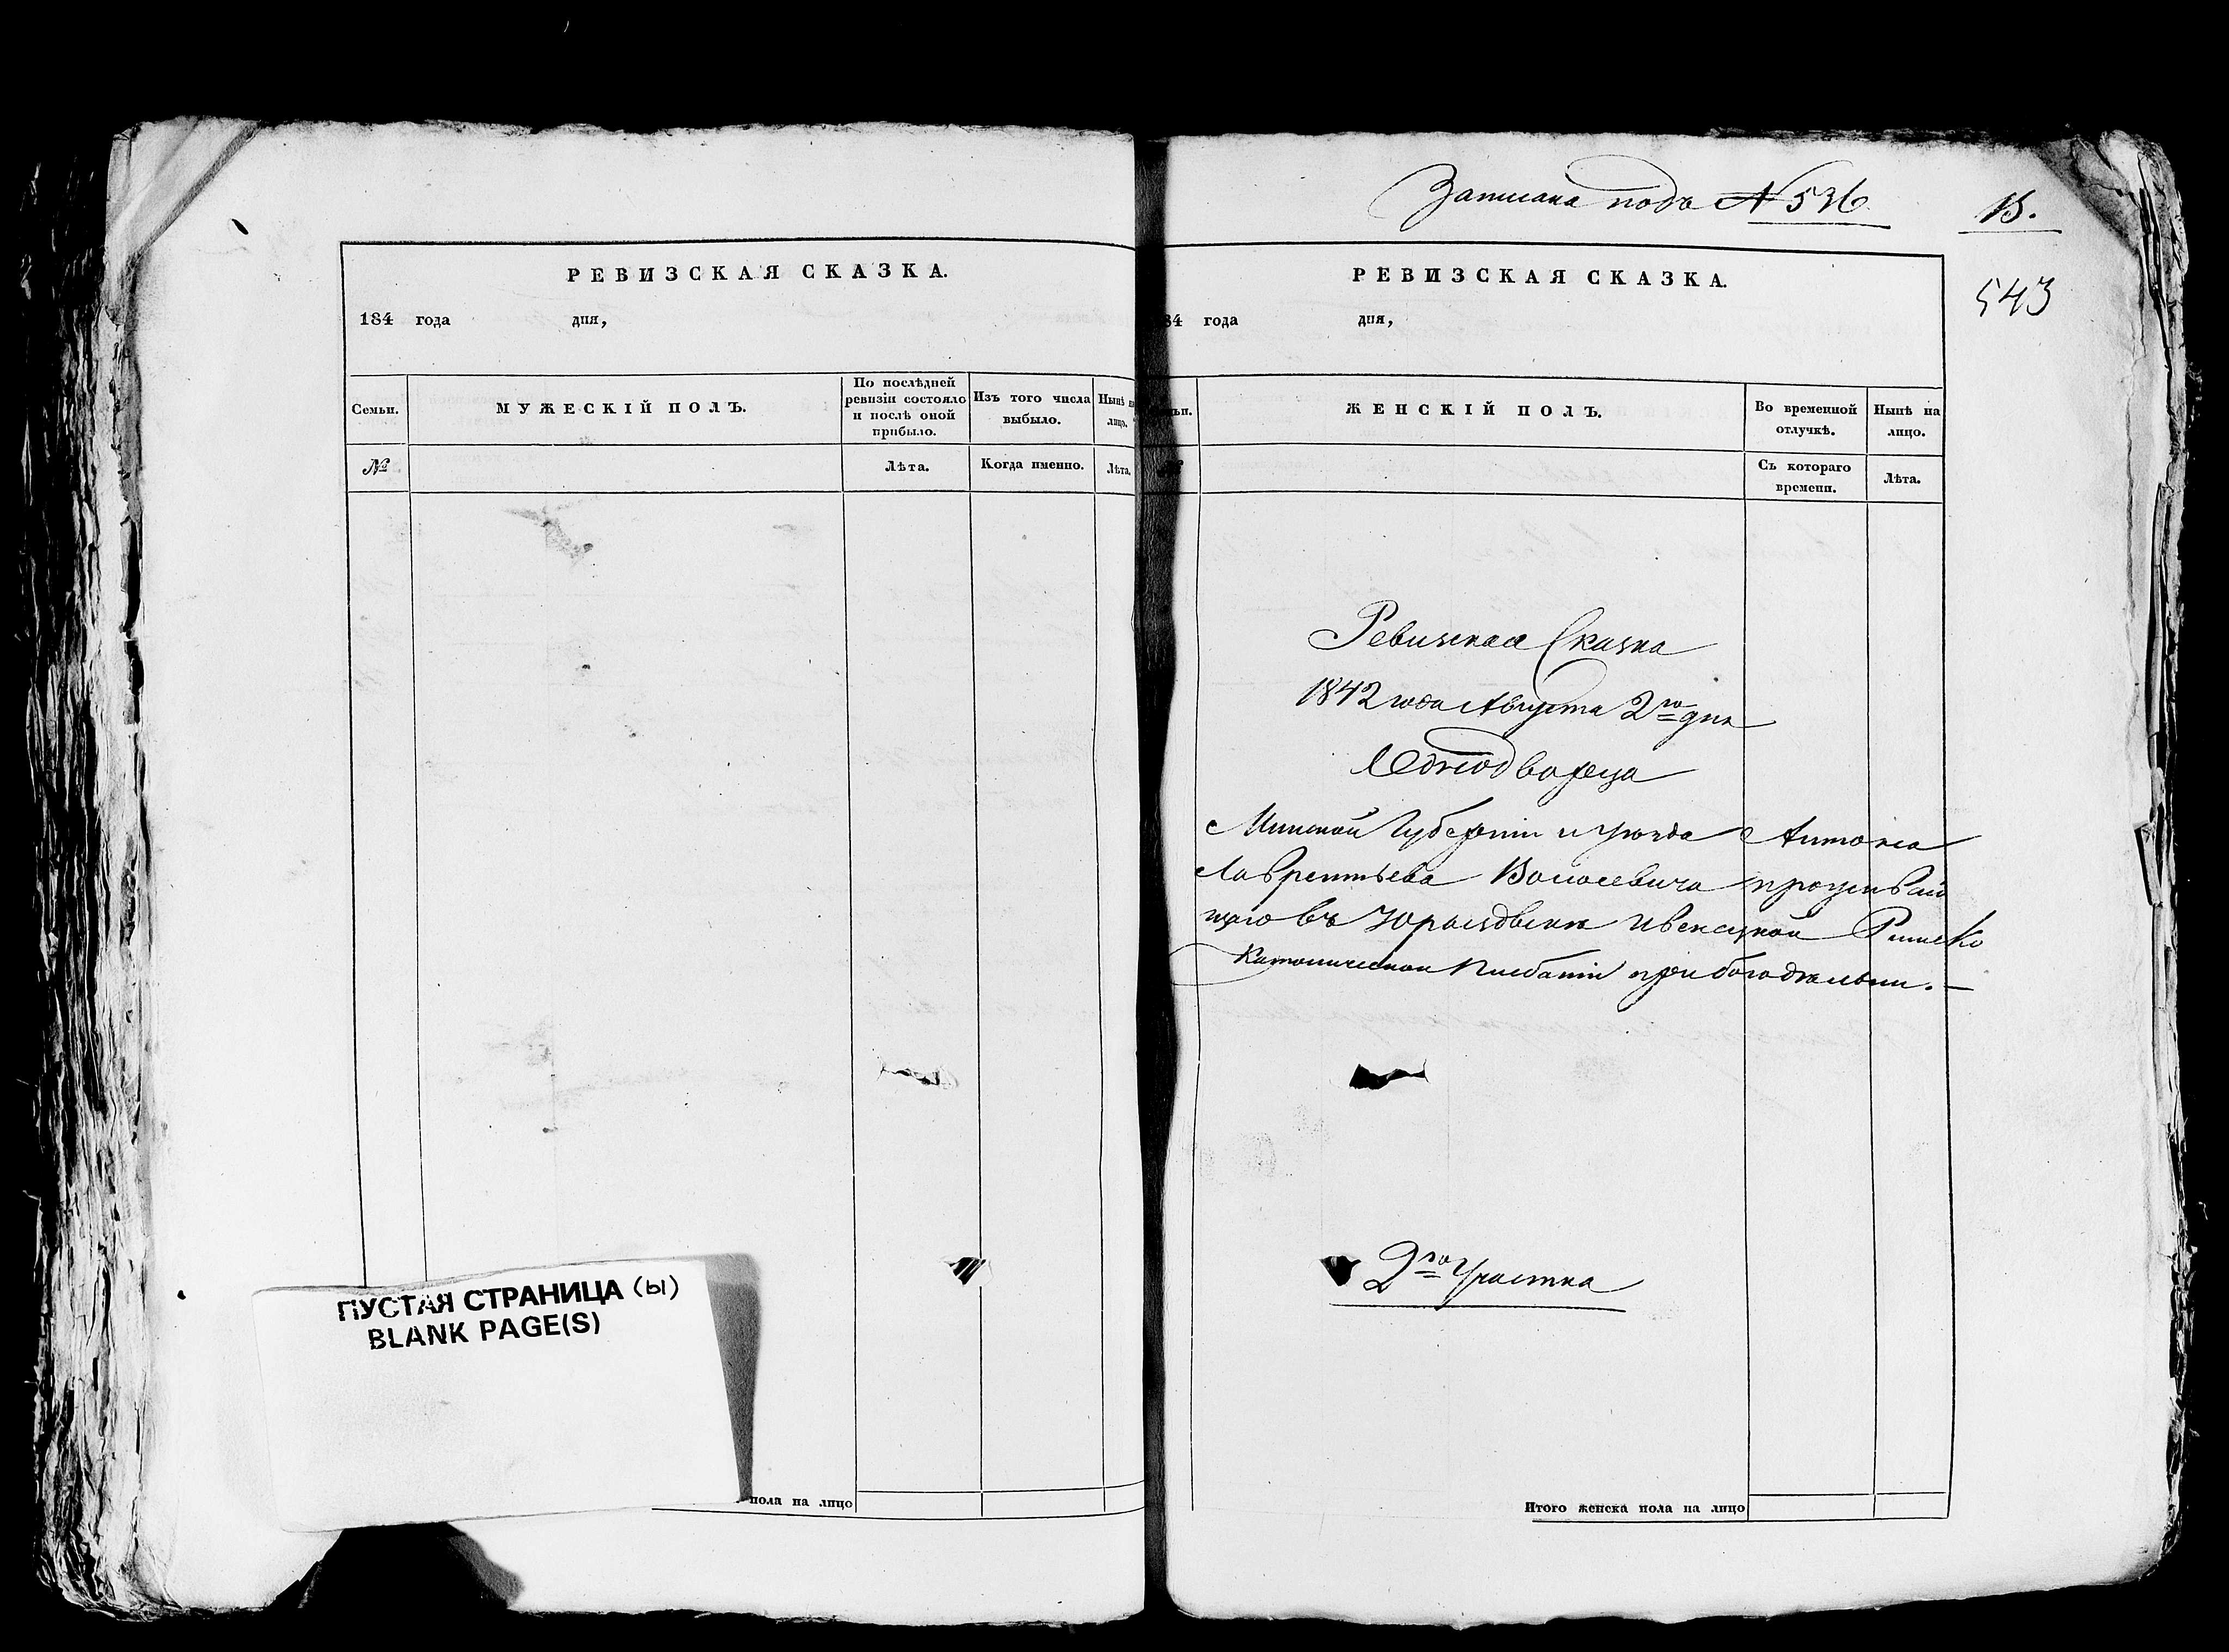 РЕВИЗСКАЯ СКАЗКА.
184 года дня,
Семьи.
МУЖЕСКІЙ ПОЛЪ.
По послѣдней ревизіи состояло и послѣ оной прибыло.
Изъ того числа выбыло.
Нынѣ на лицо.
№
Лѣта.
Когда именно.
Лѣта.
ПУСТАЯ СТРАНИЦА (Ы)
BLANK PAGE(S)
пола на лицо
Записана подъ №536
15.
543
РЕВИЗСКАЯ СКАЗКА.
84 года дня,
ьи.
ЖЕНСКІЙ ПОЛЪ.
Во временной отлучкѣ.
Нынѣ на лицо.
Съ котораго времени.
Лѣта.
Ревизская Сказка
1842 года Августа 2го дня
Однодворца
Минской Губерніи и уѣзда Антона
Лаврентьева Волосевича проживаю
щаго въ Юраздвенѣ Ивенецкой Римско
Католической при богадѣльни.
2го Участка
Итого женска пола на лицо